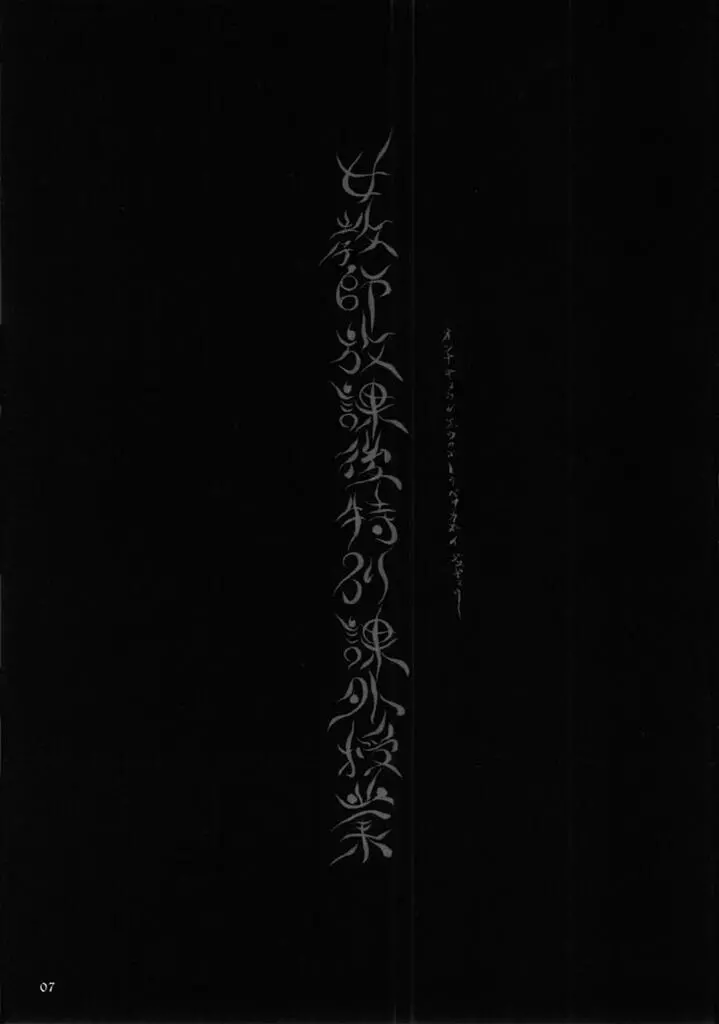 女教師放課後特別課外授業
オンナキョウシホウカゴトクベツカガイジュギョウ
07